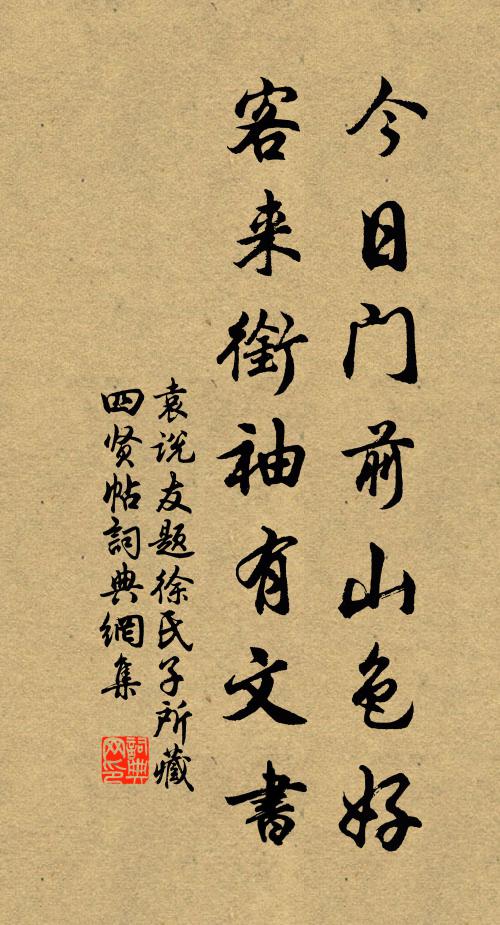 今日门前山色好
客来衔袖有文書
袁说友题徐氏子所藏
四贤帖詞典網集
詞典
网印